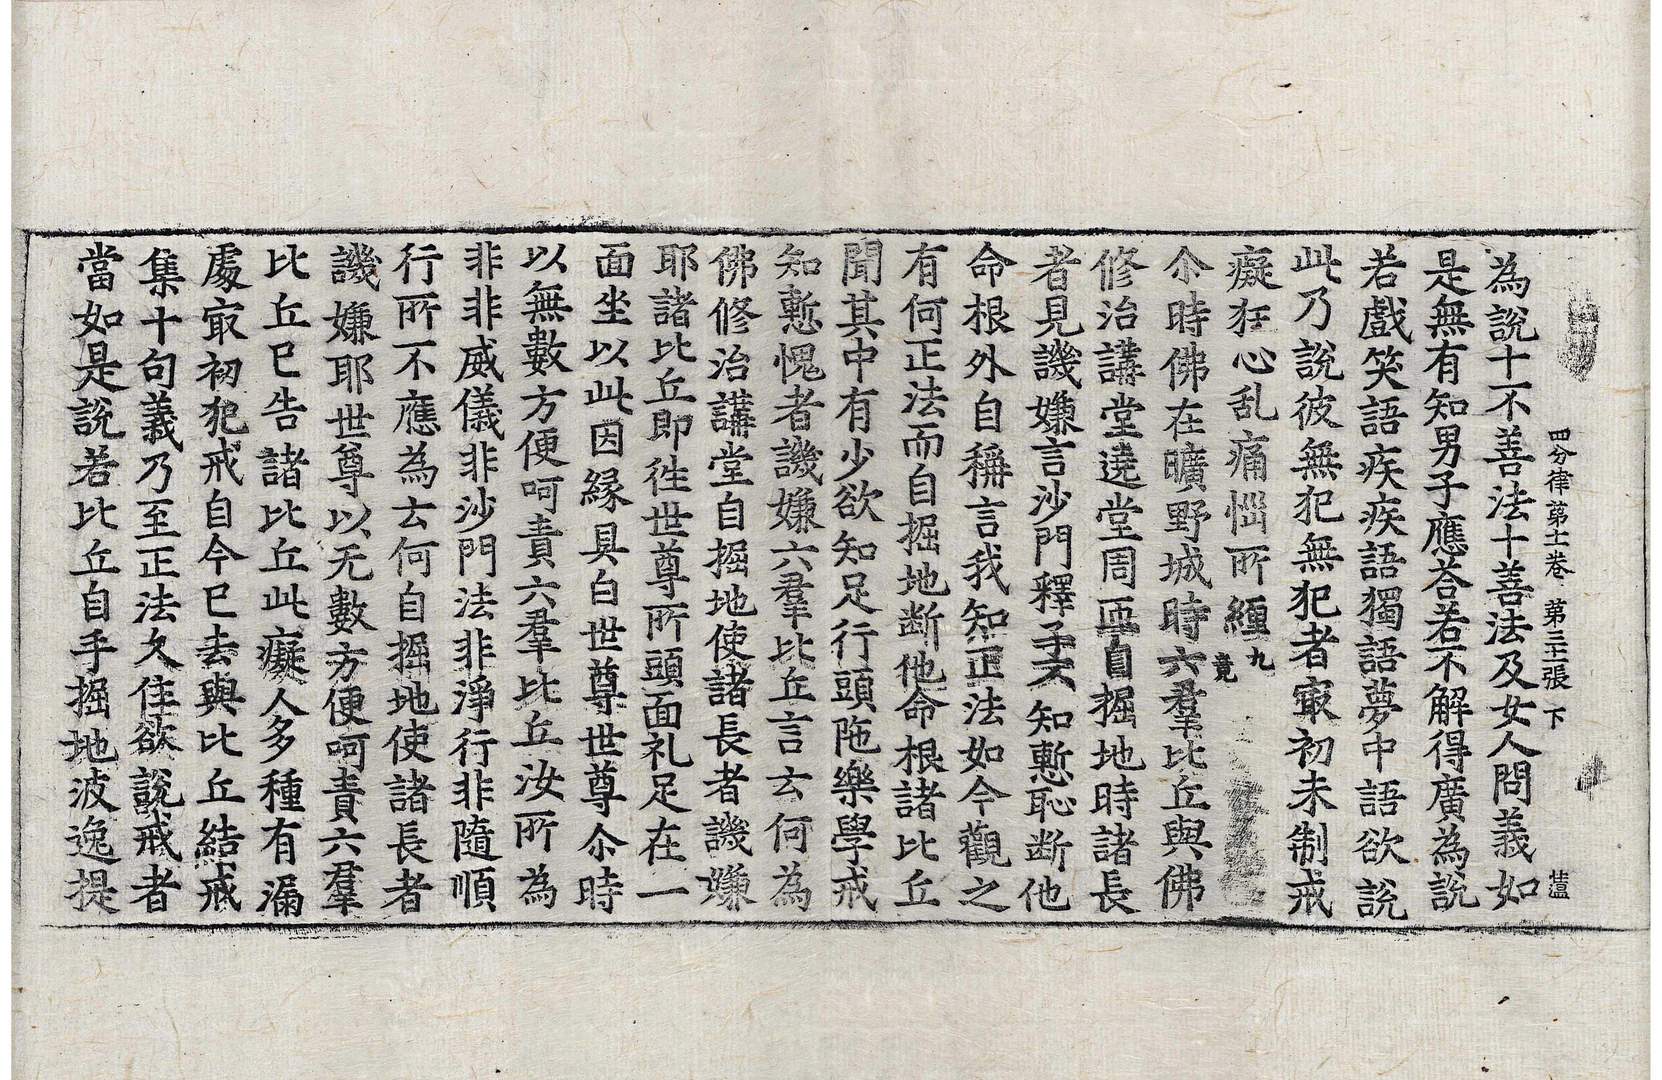 四分律第十一卷 第三十一張 下 薀
為說十不善法十善法及女人問義如
是無有知男子應荅若不解得廣為說
若戲笑語疾疾語獨語夢中語欲說
此乃說彼無犯無犯者㝡初未制戒
癡狂心乱痛惱所纏九竟
尒時佛在曠野城時六羣比丘與佛
修治講堂遶堂周帀自掘地時諸長
者見譏嫌言沙門釋子不知慙恥斷他
命根外自稱言我知正法如今觀之
有何正法而自掘地斷他命根諸比丘
聞其中有少欲知足行頭陁樂學戒
知慙愧者譏嫌六羣比丘言云何為
佛修治講堂自掘地使諸長者譏嫌
耶諸比丘即往世尊所頭面礼足在一
面坐以此因緣具白世尊世尊尒時
以無數方便呵責六羣比丘汝所為
非非威儀非沙門法非淨行非隨順
行所不應為云何自掘地使諸長者
譏嫌耶世尊以无數方便呵責六羣
比丘已告諸比丘此癡人多種有漏
處㝡初犯戒自今已去與比丘結戒
集十句義乃至正法久住欲說戒者
當如是說若比丘自手掘地波逸提